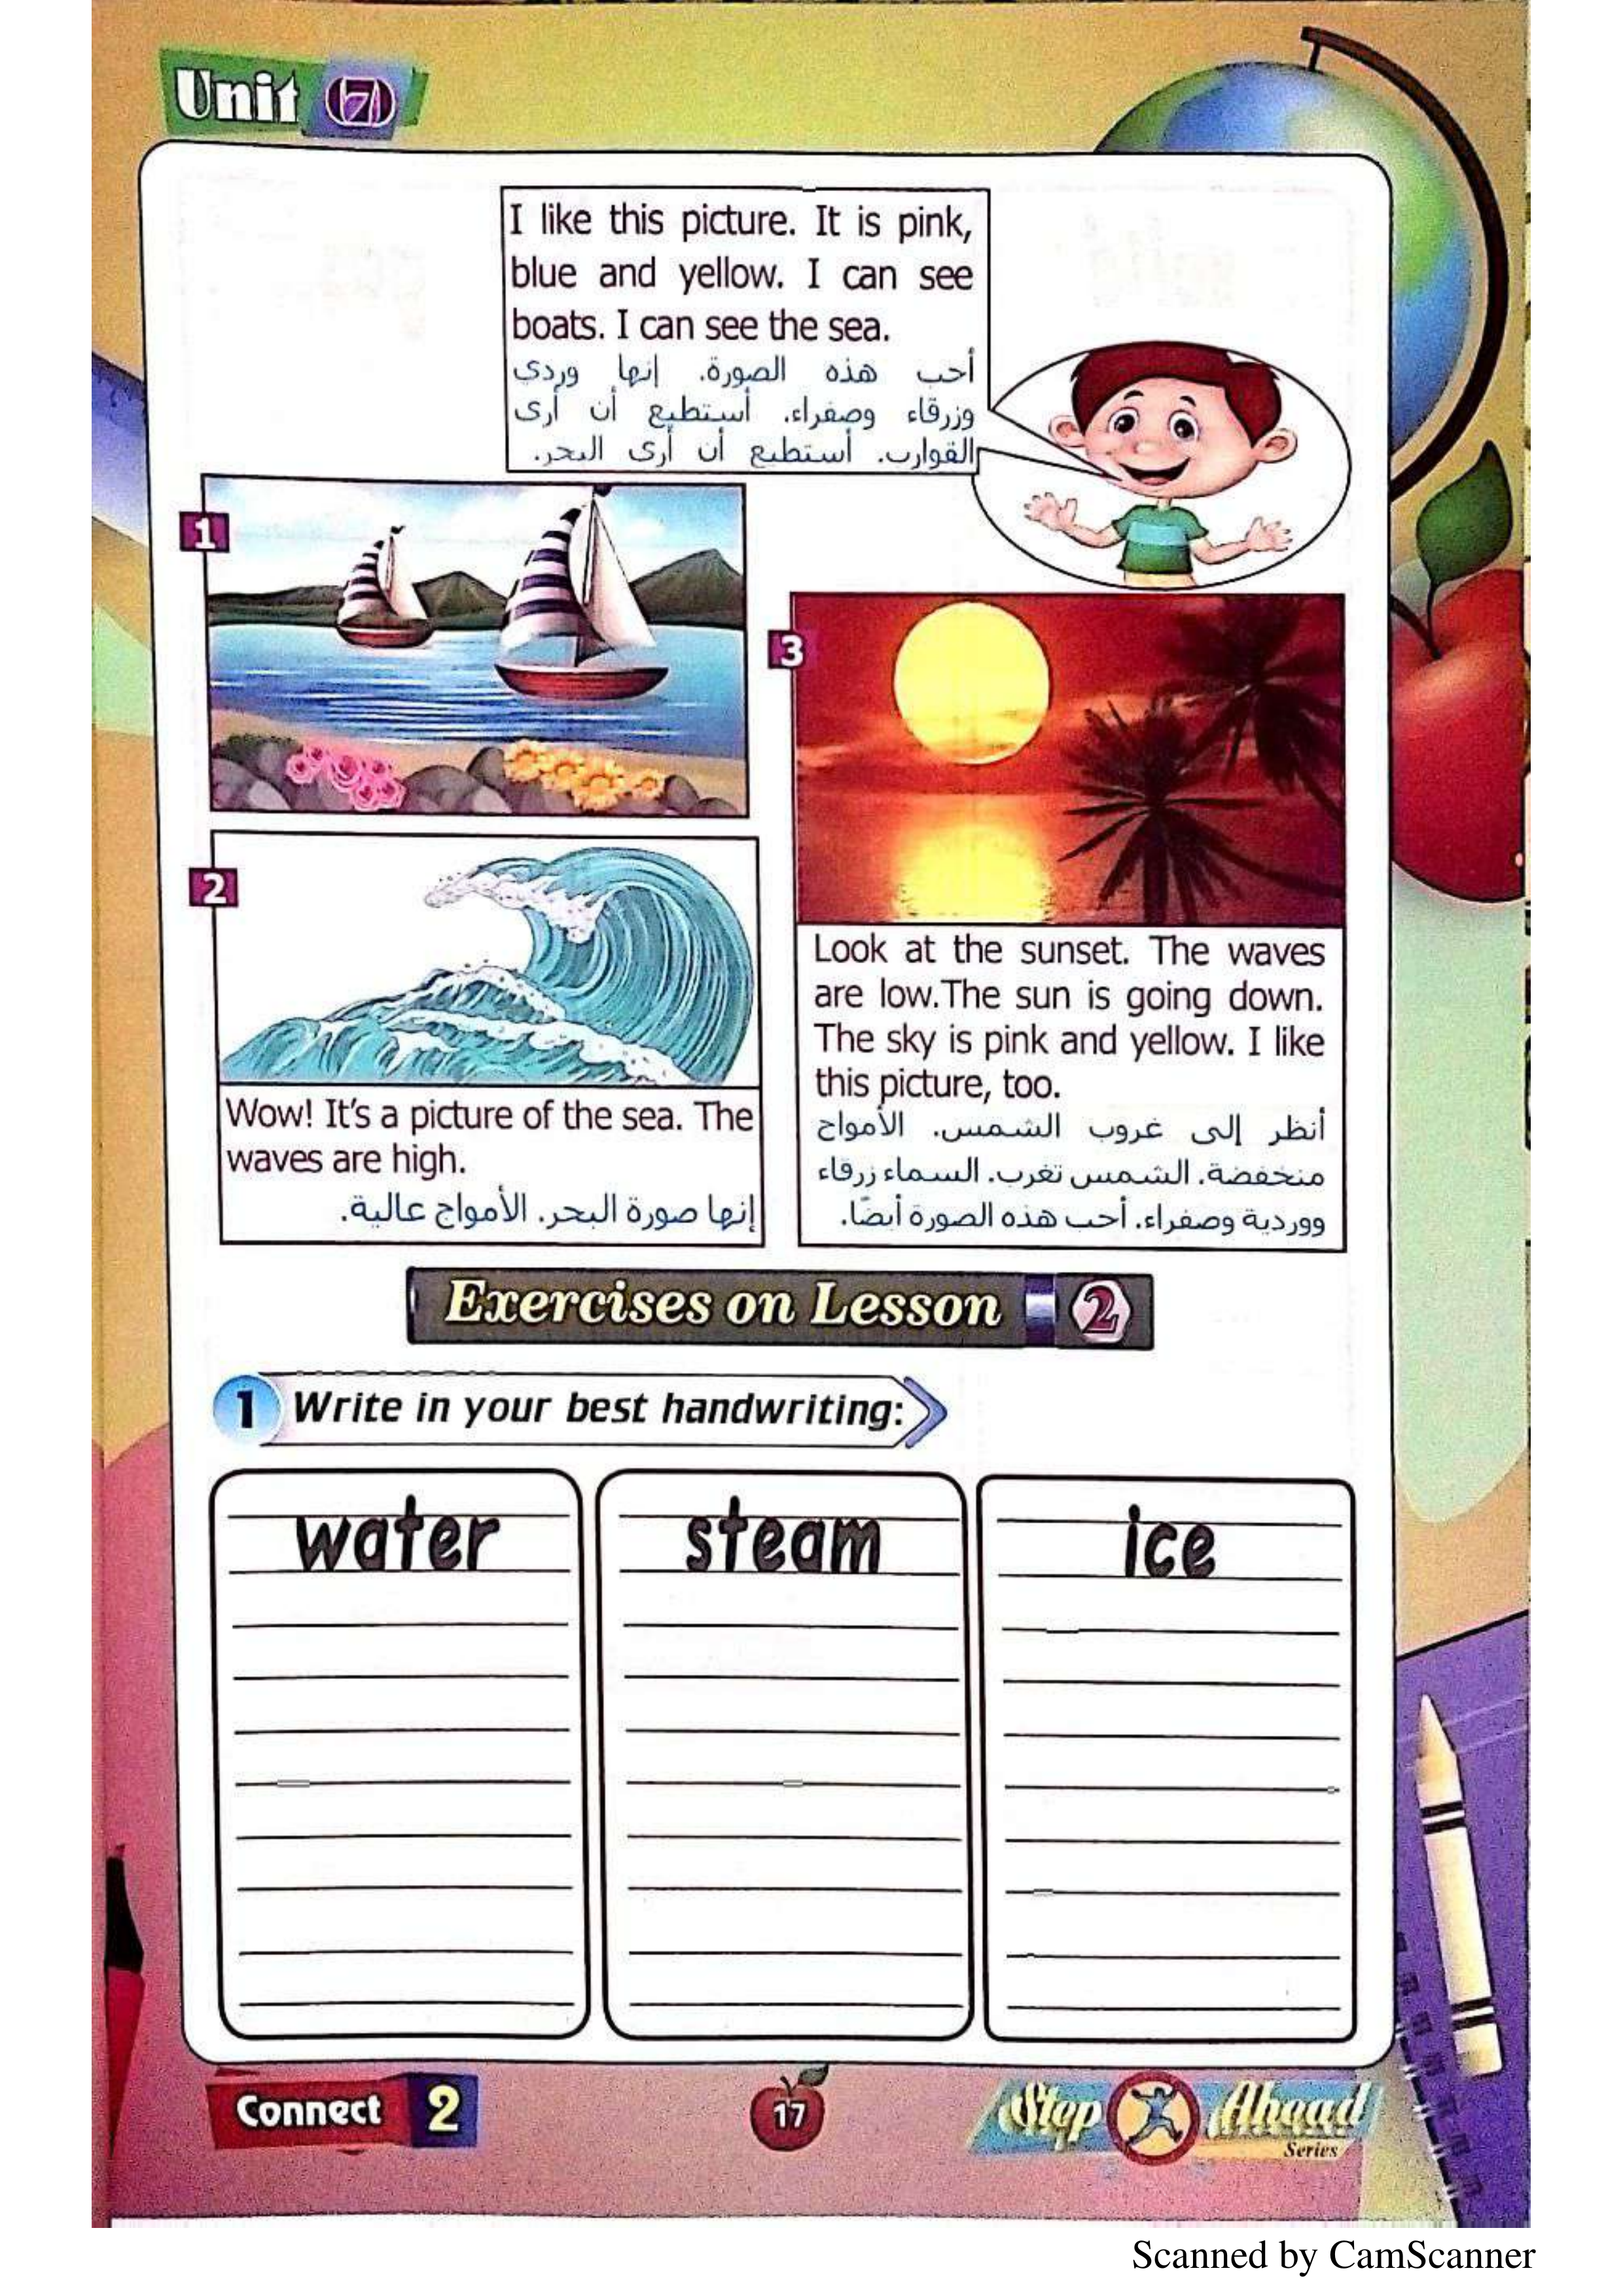 Unit 7
I like this picture. It is pink,
blue and yellow. I can see
boats. I can see the sea.
أحب هذه الصورة. إنها وردى
وزرقاء وصفراء. أستطيع أن أرى
القوارب. أستطيع أن أرى البحر.
1
2
Wow! It's a picture of the sea. The
waves are high.
إنها صورة البحر. الأمواج عالية.
3
Look at the sunset. The waves
are low.The sun is going down.
The sky is pink and yellow. I like
this picture, too.
أنظر إلى غروب الشمس. الأمواج
منخفضة. الشمس تغرب. السماء زرقاء
ووردية وصفراء. أحب هذه الصورة أيضًا.
Exercises on Lesson 2
1 Write in your best handwriting:
water steam ice
Connect 2
17
Step Ahead
Series
Scanned by CamScanner